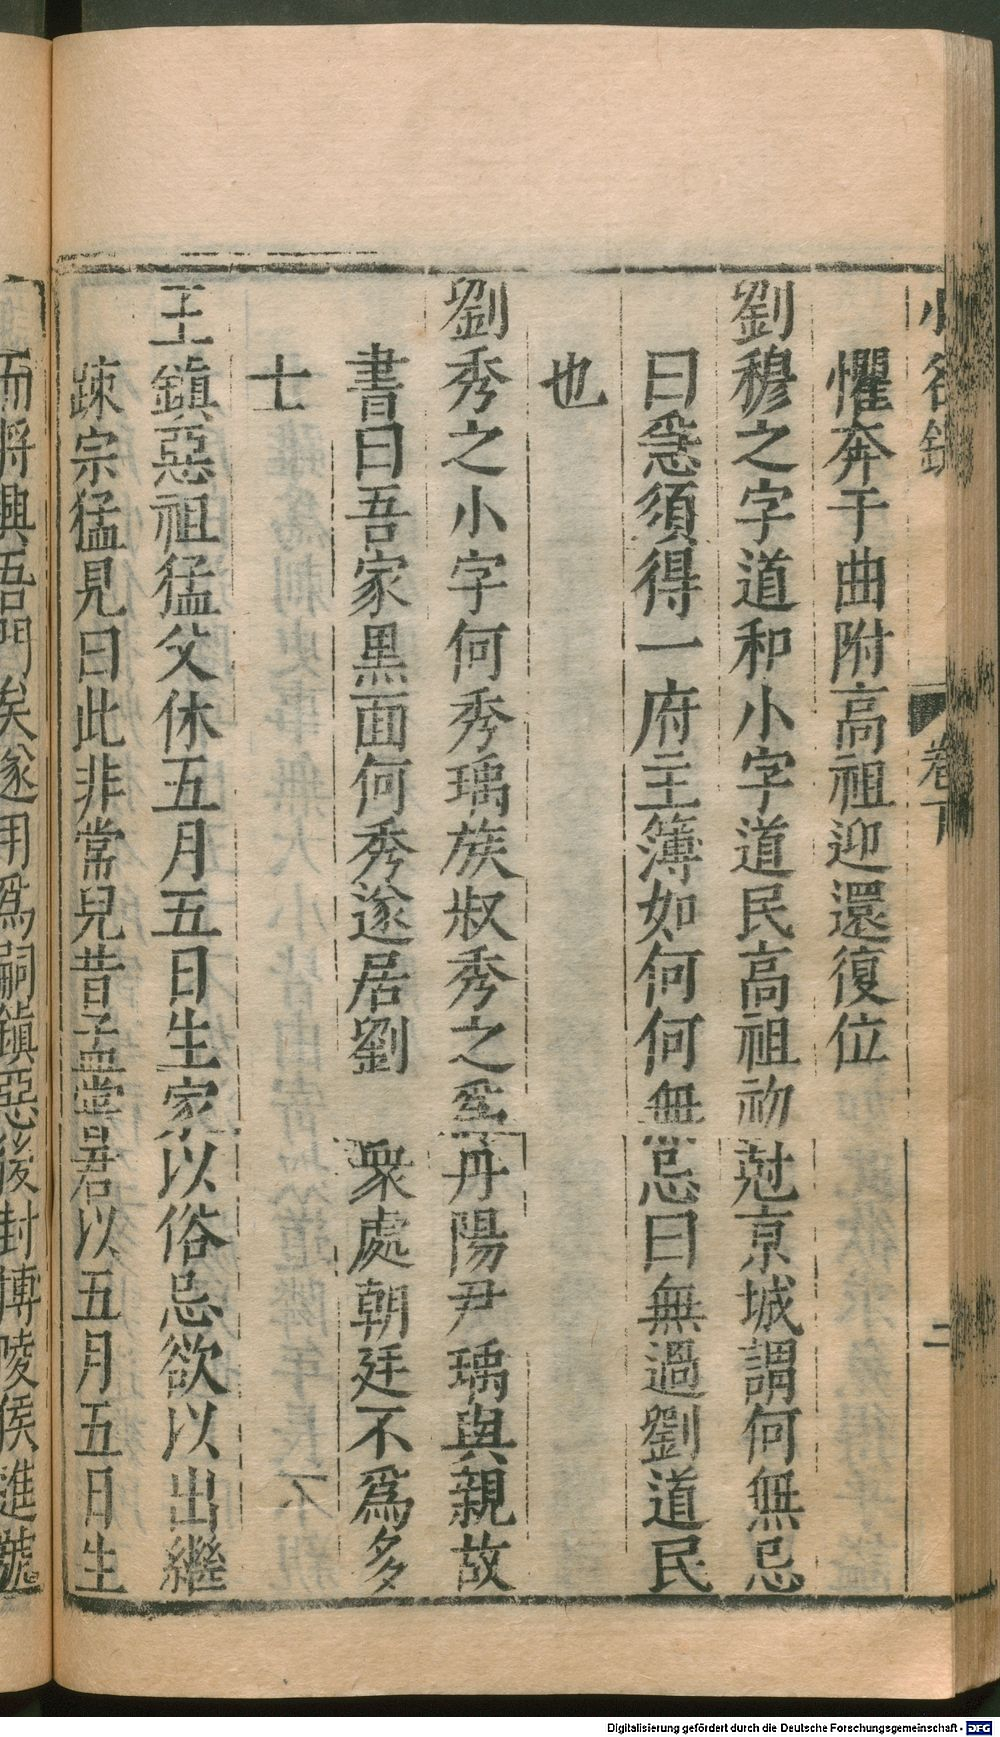 小名錄 卷下 二
懼奔于曲附高祖迎還復位
劉穆之字道和小字道民高祖初尅京城謂何無忌
曰急須得一府主簿如何何無忌曰無過劉道民
也
劉秀之小字何秀瑀族叔秀之爲丹陽尹瑀與親故
書曰吾家黒面何秀遂居劉 衆處朝廷不爲多
士
王鎮惡祖猛父休五月五日生家以俗忌欲以出繼
疎宗猛見曰此非常兒昔孟嘗君以五月五日生
而將興吾門矣遂用爲嗣鎮惡後封博陵侯進號
Digitalisierung gefördert durch die Deutsche Forschungsgemeinschaft - DFG